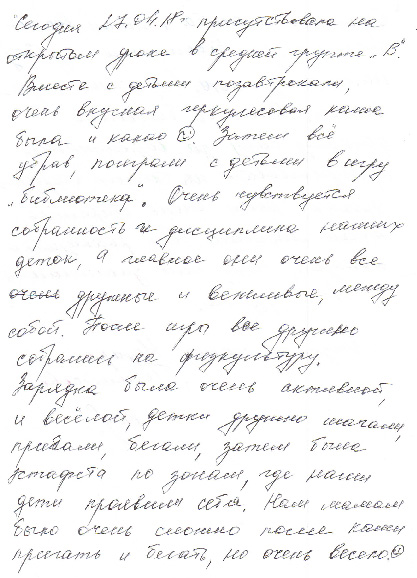 "Сегодня 27.04.18г. присутствовала на
открытом уроке в средней группе „В".
Вместе с детьми позавтракали,
очень вкусная геркулесовая каша
была и какао ☺. Затем всё
убрав, поиграли с детьми в игру
„Библиотека". Очень чувствуется
собранность и дисциплина наших
деток, а главное они очень все
очень дружные и вежливые, между
собой. После игры все дружно
собрались на физкультуру.
Зарядка была очень активной,
и весёлой, детки дружно шагали,
прыгали, бегали, затем была
эстафета по зонам, где наши
дети проявили себя. Нам мамам
было очень сложно после каши
прыгать и бегать, но очень весело.☺